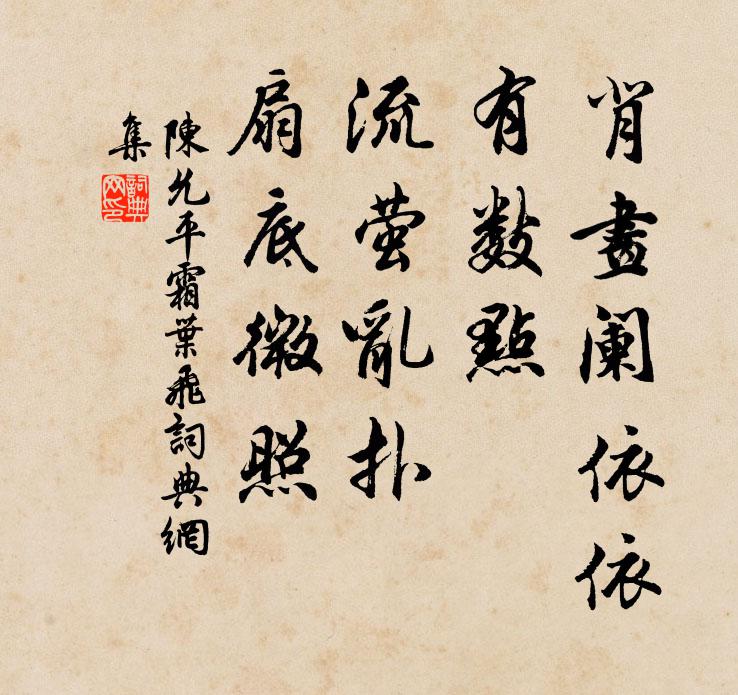 背畫阑依依
有数點
流萤亂扑
扇底微照
陳允平霜葉飛詞典網
集
詞典
网印